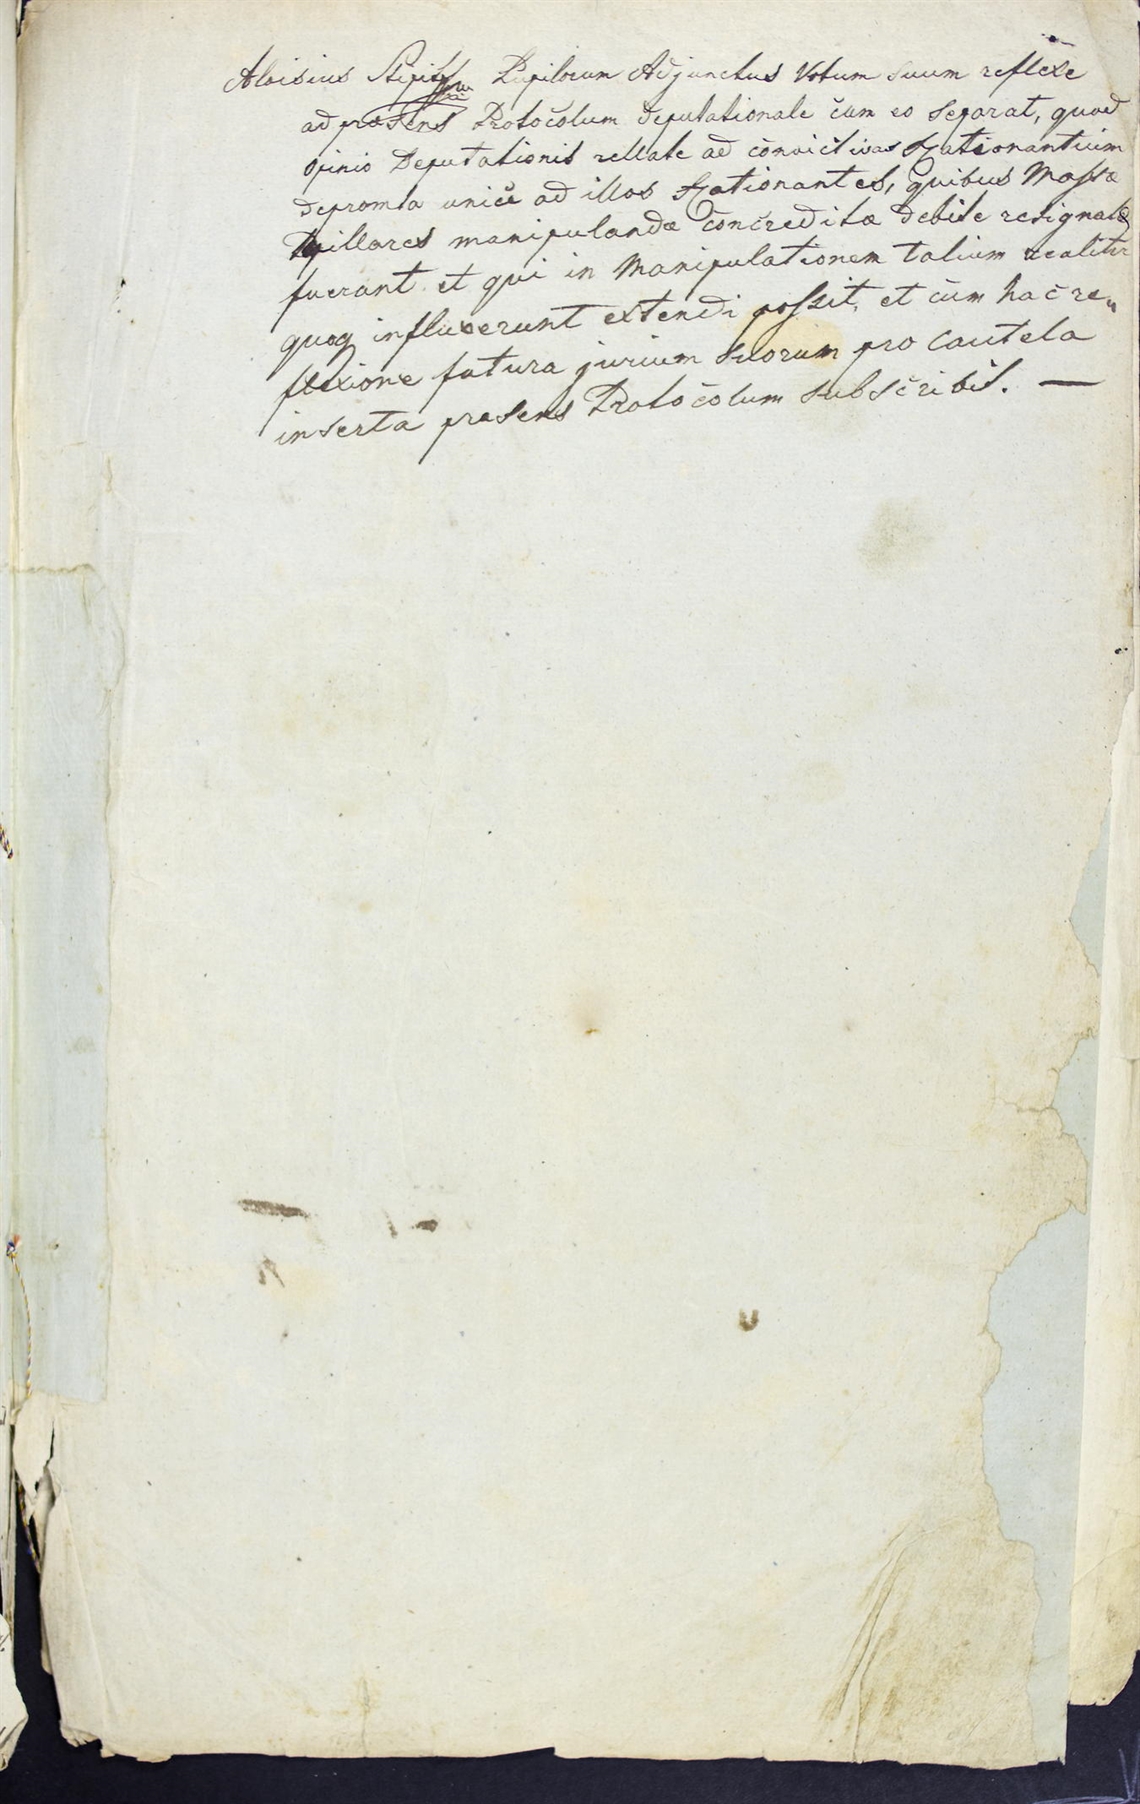 Aloisius Pupilorum Adjunctus Votum suum reflexe
ad præsens Protocolum deputationale cum eo separat, quod
opinio Deputationis rellate ad convictivas Rationantium
depromta unice ad illos Rationantes, quibus Massæ
manipulandæ concreditæ debite resignatæ
fuerant et qui in Manipulationem talium realiter
quoq influxerunt extendi possit, et cum hac re„
flexione futura jurium suorum pro cautela
inserta præsens Protocolum subscribit. —